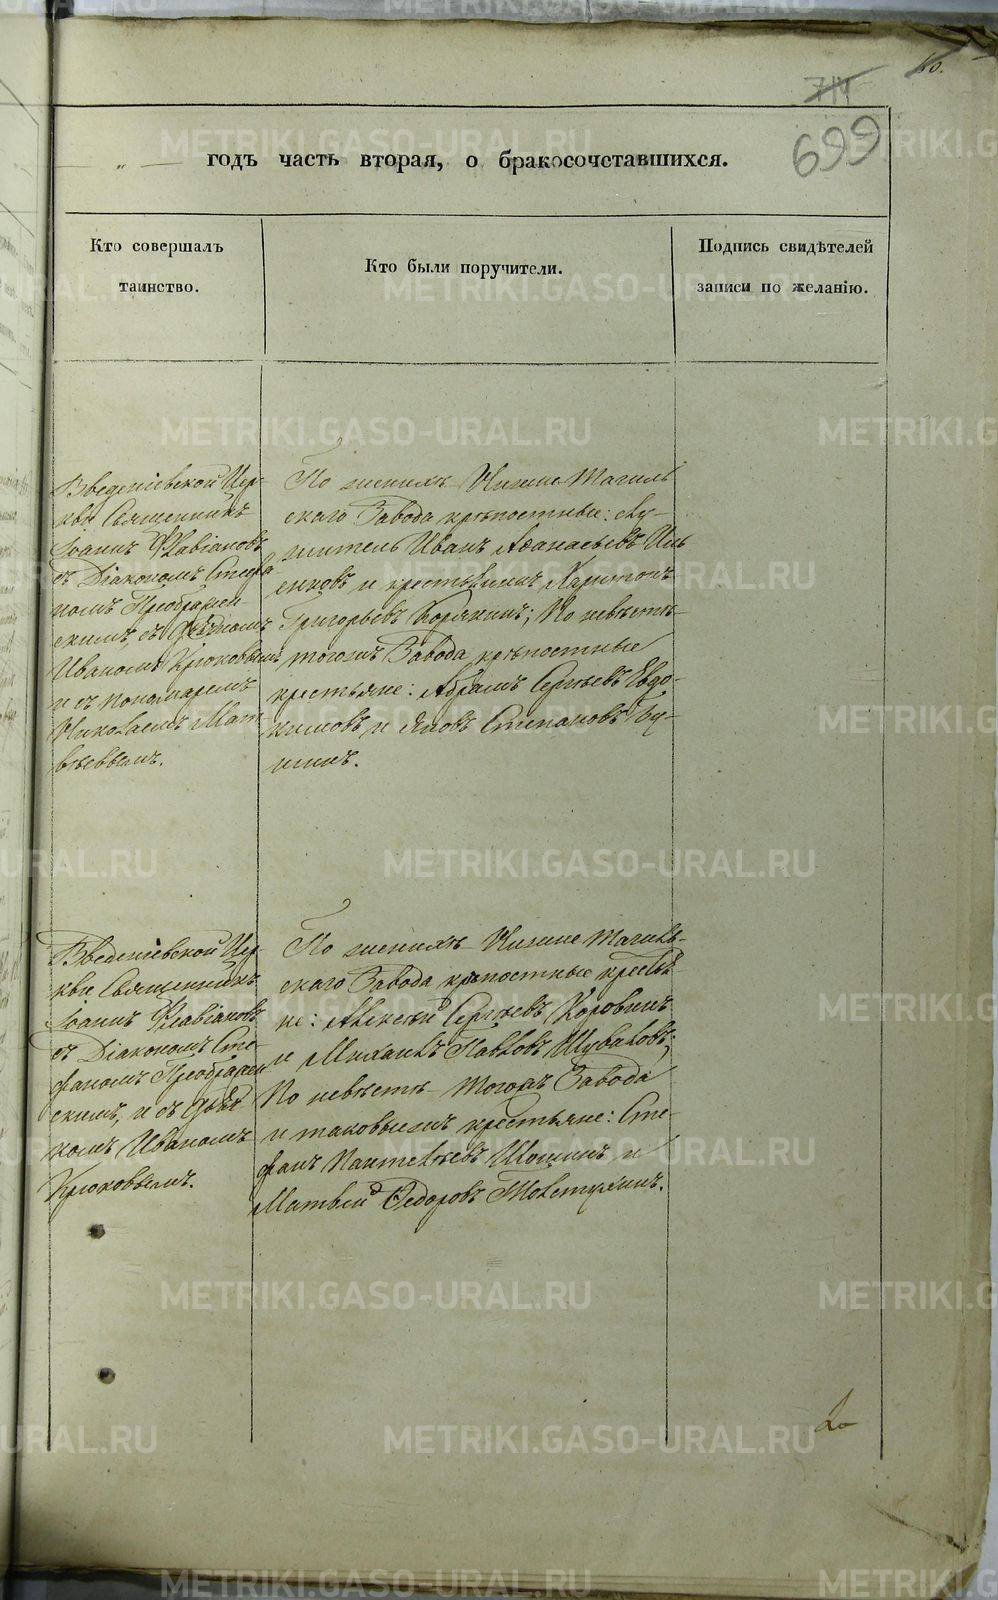 10.
714
699
годъ часть вторая, о бракосочетавшихся.
Кто совершалъ
таинство.
Кто были поручители.
Подпись свидѣтелей
записи по желанію.
Введеніевской Цер-
кви Священникъ
Іоаннъ Флавіановъ
съ Діакономъ Стефа
номъ Преображен
скимъ, съ Дьячкомъ
Иваномъ Крюковымъ
и съ пономаремъ
Николаемъ Мат
вѣевымъ.
По женихѣ Нижне Тагиль
скаго Завода крѣпостные: Слу-
житель Иванъ Аѳанасьевъ
и крестьянинъ Харитонъ
Григорьевъ Корякинъ; По невѣстѣ
тогожъ Завода крѣпостные
крестьяне: Абрамъ Сергѣевъ Евдо-
кимовъ и Яковъ Степановъ
Введеніевской Цер-
кви Священникъ
Іоаннъ Флавіановъ
съ Діакономъ Сте-
фаномъ Преображен
скимъ, и съ Дьяч
комъ Иваномъ
Крюковымъ.
По женихѣ Нижне Тагиль-
скаго Завода крѣпостные крестья
не: Алексѣй Сергѣевъ Коровинъ
и Михаилъ Павловъ Шуваловъ;
По невѣстѣ тогожъ Завода
и таковыежъ крестьяне: Сте-
фанъ Пантелѣевъ Шошинъ и
Матвѣй Ѳедоровъ Толстухинъ.
METRIKI.GASO-URAL.RU